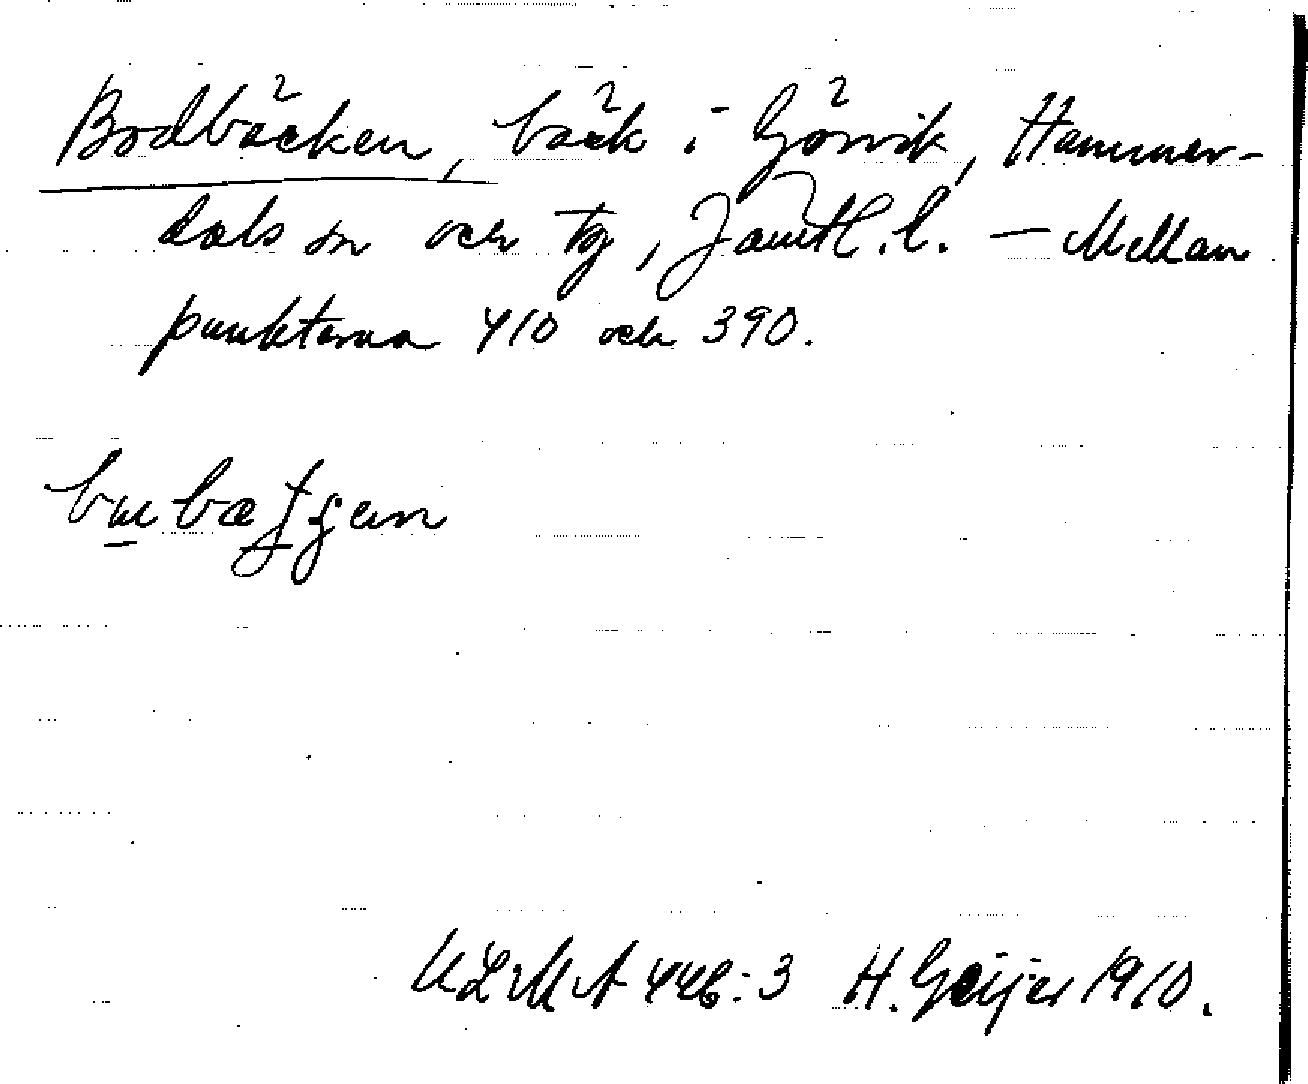 Bodbäcken, bäck i Görvik, Hammer-
dals sn och tg, Jämtl. l. — Mellan
punkterna 410 och 390.
ULMA 446:3 H. Geijer 1910.